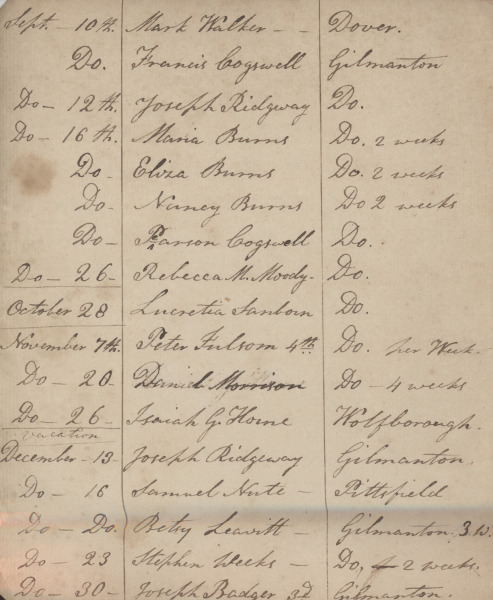 Sept. - 10th. Mark Walker - - Dover.
Do. Francis Cogswell Gilmanton
Do - 12th. Joseph Ridgway Do.
Do - 16th. Maria Burns Do. 2 weeks
Do - Eliza Burns Do. 2 weeks
Do - Nancy Burns Do 2 weeks
Do - Parson Cogswell Do.
Do - 26 - Rebecca M. Moody - Do.
October 28 Lucretia Sanborn Do.
November 7th. Peter Fulsom 4th Do. per Week.
Do - 20 - Daniel Morrison Do - 4 weeks
Do - 26 - Isaiah G. Horne Wolfborough.
vacation
December - 13 - Joseph Ridgway Gilmanton.
Do - 16 Samuel Nute - Pittsfield
Do - Do. Betsy Leavitt - Gilmanton. 3 w.
Do - 23 Stephen Weeks - Do, 2 weeks.
Do - 30 - Joseph Badger 3d Gilmanton.